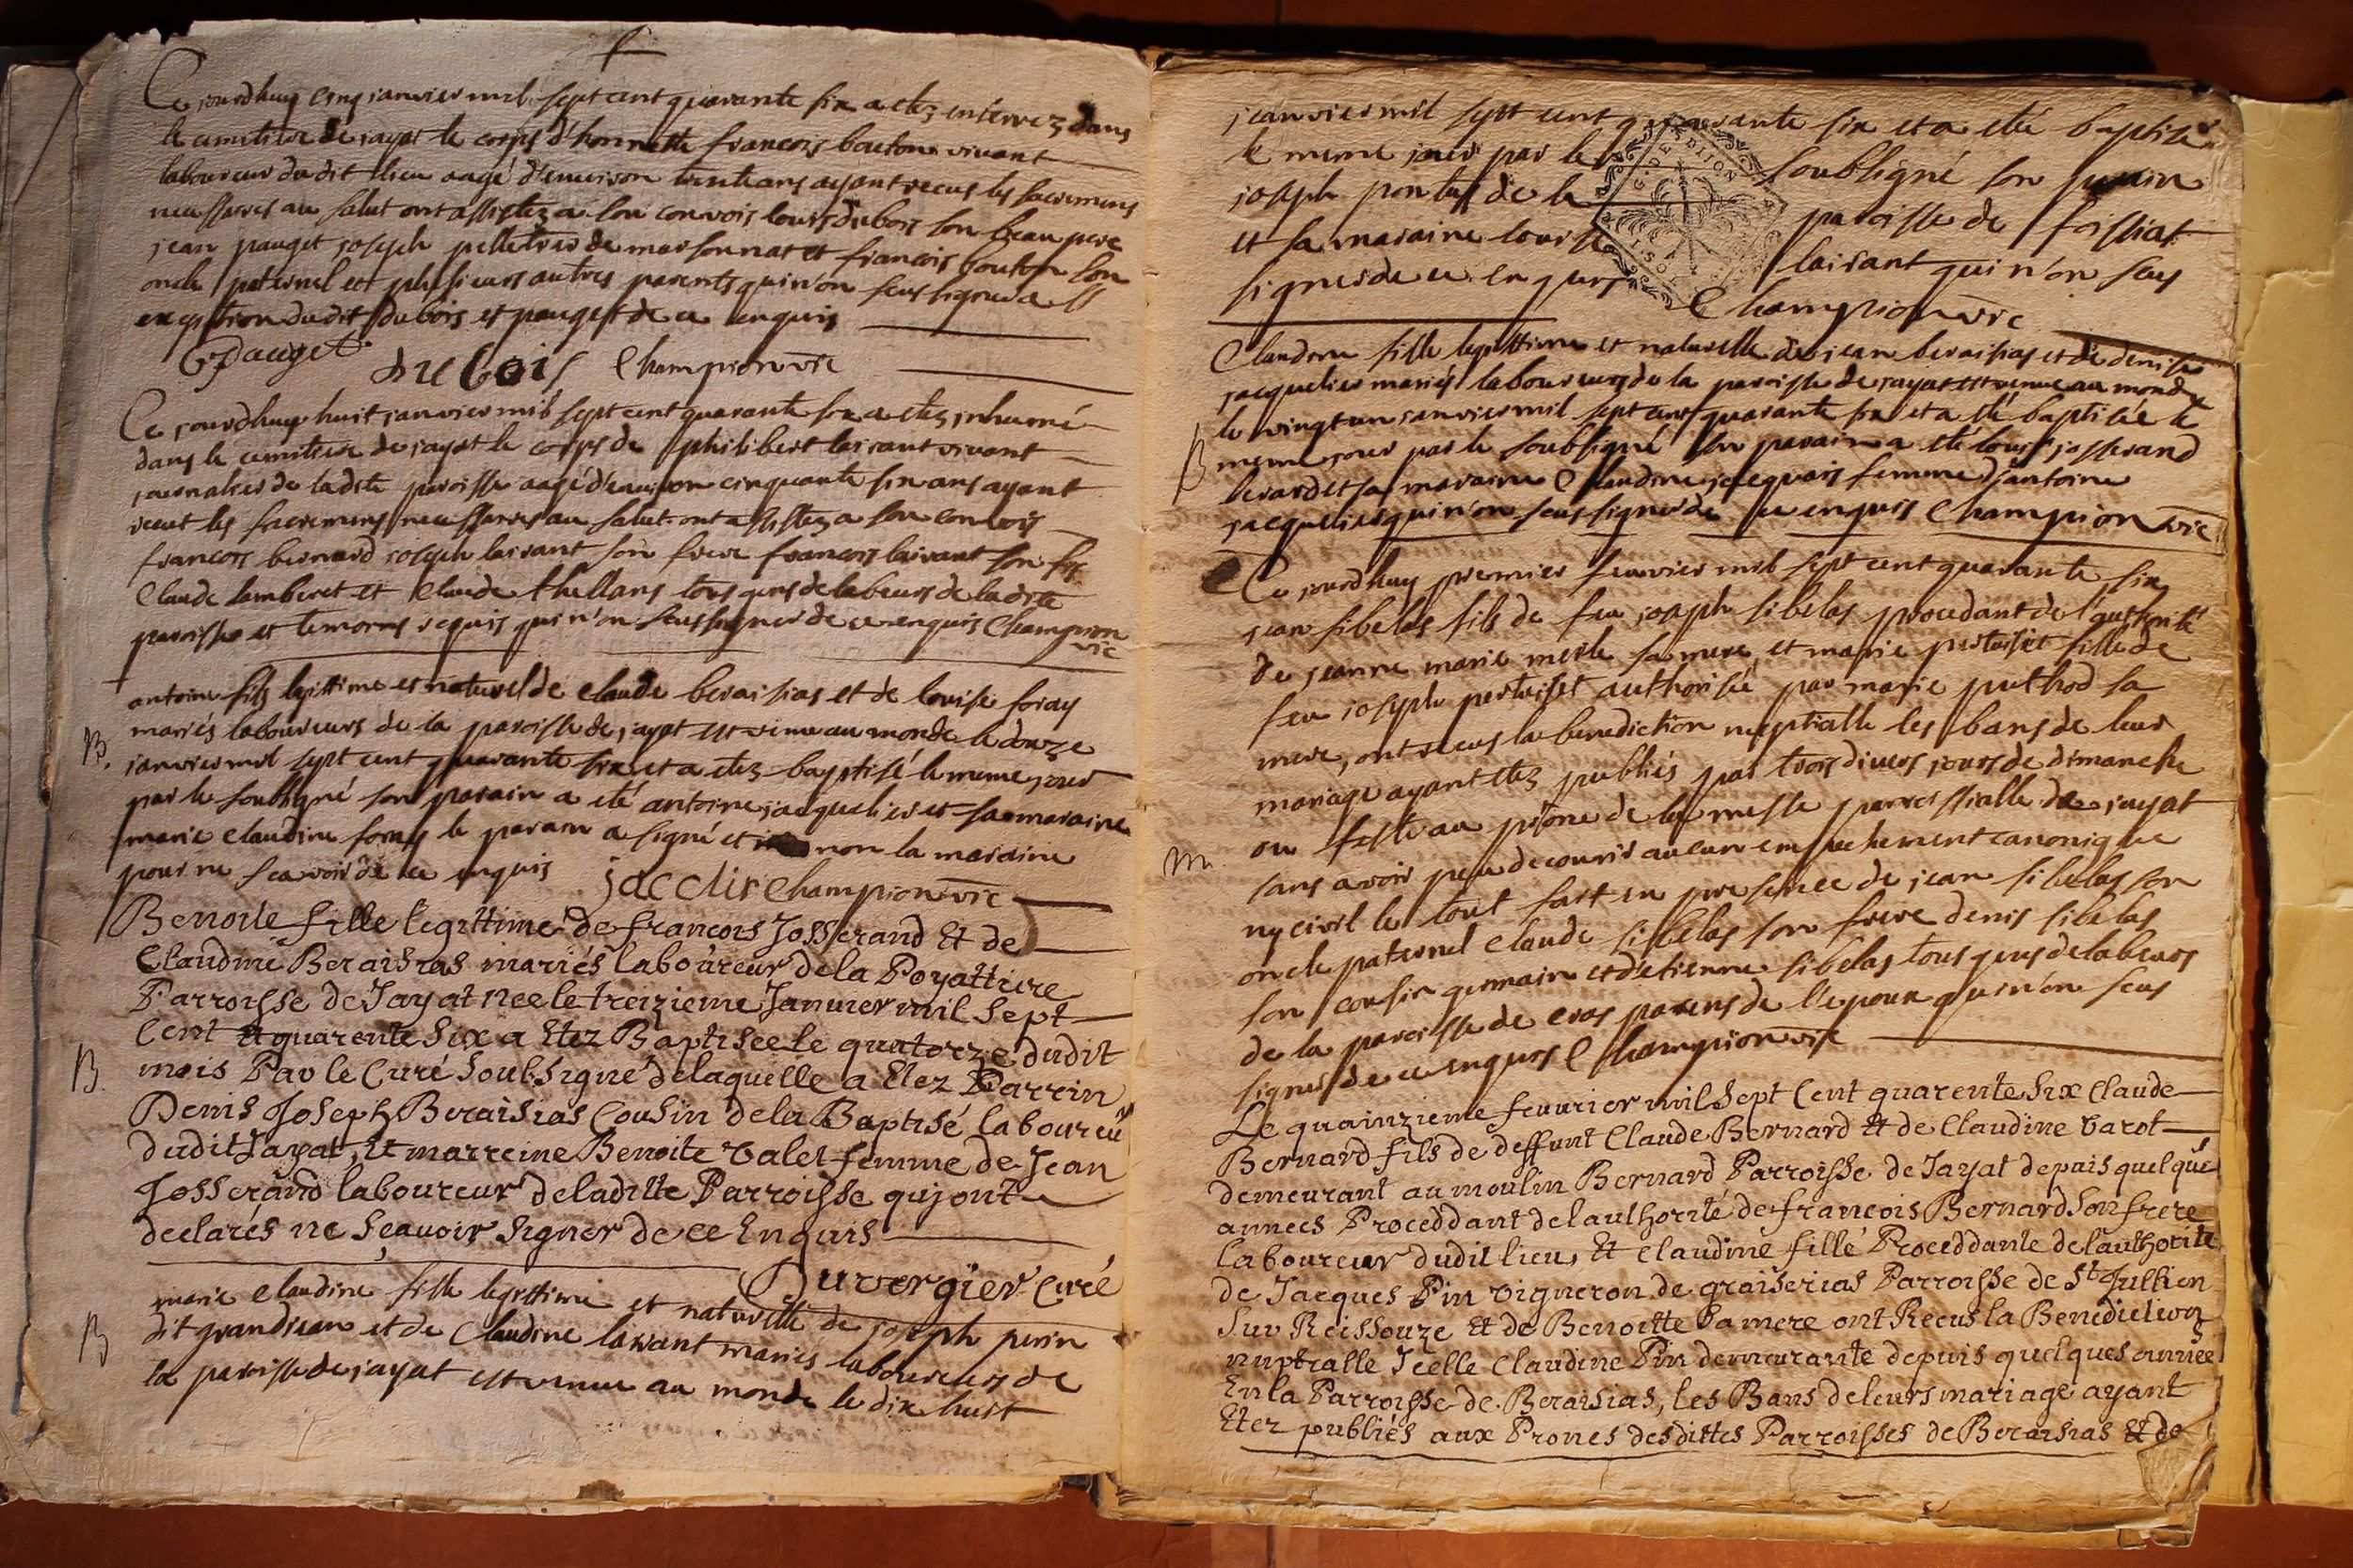 Ce jourdhuy cinq janvier mil sept cent quarante six a etez enterrez dans
le cimitiere de jayat le corps d'honnette francois bouton vivant
laboureur dudit lieu aagé d'enuiron trente ans ayant recus les sacremens
necessaires au salut ont assistez a son convois louis dubois son beau pere
jean pauget joseph pelletier de marsonnat et francois bouton son
oncle paternel et plusieurs autres parents qui n'on sceus signer a l
exception dudit dubois et pauget de ce enquis
Pauget
dubois Championvic
Ce jourdhuy huit janvier mil sept cent quarante six a etez inhumé
dans le cimitiere de jayat le corps de philibert laisant vivant
journalier de ladite paroisse aagé d'enuiron cinquante six ans ayant
recut les sacremens necessaires au salut ont assistez a son convois
francois bernard joseph laisant son frere francois laisant son fils
Claude lamberet et Claude thellans tous gens de labeurs de ladite
paroisse et temoins requis qui n'on sceus signer de ce enquis Champion
vic
antoine fils legittime et naturel de claude beraisias et de louise foray
mariés laboureurs de la paroisse de jayat est venu au monde le douze
B.
janvier mil sept cent quarante six et a etez baptisé le meme jour
par le soubsigné son parain a eté antoine jacquelier et sa maraine
marie claudine foray le parain a signé et non la maraine
pour ne scavoir de ce enquis jacclir Championvic
Benoite fille legittime de francois Josserand Et de
Claudine Beraisias mariés laboureur de la Poyattiere
Parroisse de Jayat née le treizieme Januier mil Sept
Cent Et quarente Six a Etez Baptisee le quatorze dudit
B.
mois Par le Curé Soubsigné de laquelle a Etez Parrin
Denis Joseph Beraisias Cousin de la Baptisé laboureu
dudit Jayat, Et marreine Benoite Valet femme de Jean
Josserand laboureur de laditte Parroisse qui ont
declarés ne Sçauoir Signer de ce Enquis
Duvergier Curé
marie claudine fille legittime et naturelle de joseph perin
B
dit grandjean et de Claudine laisant mariés laboureurs de
la paroisse de jayat est venue au monde le dix huit
janvier mil sept cent quarante six et a eté baptisée
le meme jour par le soubsigné son parain
G. DE DIJON
joseph pontus de la paroisse de foissiat
et sa maraine louise laisant qui n'on sceus
signer de ce enquis Championvic
Claudine fille legittime et naturelle de jean beraisias et de denise
jacquelier mariés laboureurs de la paroisse de jayat est venue au monde
le vingt un janvier mil sept cent quarante six et a eté baptisée le
B
meme jour par le soubsigné son parain a eté louis josserand
berardet sa maraine Claudine jacquais femme d'antoine
jacquelier qui n'on sceus signer de ce enquis Champion vic
Ce jourdhuy premier feuvrier mil sept cent quarante six
jean sibelas fils de feu joseph sibelas procedant de l'authorité
de jeanne marie merle sa mere et marie pertuiset fille de
feu joseph pertuiset authorisée par marie puthod sa
mere, ont recus la benediction nuptialle les bans de leur
mariage ayant etez publiés par trois divers jours de dimanche
ou feste au prône de la messe parroissialle de jayat
m.
sans avoir peu decouvrir aucun empechement canonique
ny civil le tout fait en presence de jean sibelas son
oncle paternel claude sibelas son frere denis sibelas
son cousin germain et d'etienne sibelas tous gens de labeurs
de la paroisse de cras parens de l'epoux qui n'on sceus
signer de ce enquis Championvic
Le quainzieme feuurier mil Sept Cent quarente Six Claude
Bernard fils de deffunt Claude Bernard Et de Claudine Varot
demeurant au moulin Bernard Parroisse de Jayat depuis quelque
annees Proceddant de l'authorité de francois Bernard Son frere
laboureur dudit lieu, Et Claudine fille Proceddante de l'authorité
de Jacques Pin vigneron de graiserias Parroisse de St Jullien
Sur Reissouze Et de Benoitte Sa mere ont Recus la Benediction
nuptialle Icelle Claudine Pin demeurante depuis quelques année
En la Parroisse de Beraisias, les Bans de leurs mariage ayant
Etez publiés aux Prones desdittes Parroisses de Beraisias Et de